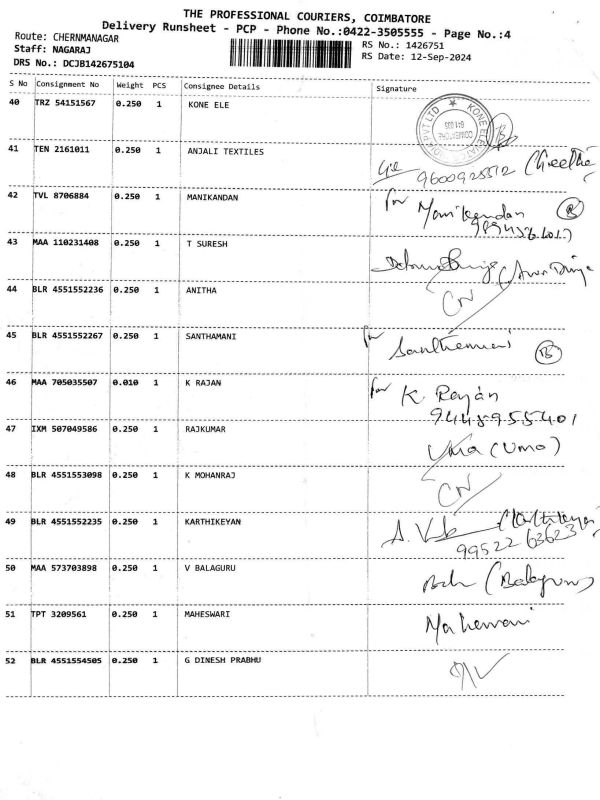 THE PROFESSIONAL COURIERS, COIMBATORE
Delivery Runsheet - PCP - Phone No.:0422-3505555 - Page No.:4
Route: CHERNMANAGAR
Staff: NAGARAJ
DRS No.: DCJB142675104
RS No.: 1426751
RS Date: 12-Sep-2024
S No Consignment No Weight PCS Consignee Details Signature
40 TRZ 54151567 0.250 1 KONE ELE
KONE ELE
PVT LTD
COIMBATORE
641 035
41 TEN 2161011 0.250 1 ANJALI TEXTILES
9600925512 (Geetha
42 TVL 8706884 0.250 1 MANIKANDAN
for Manikandan
43 MAA 110231408 0.250 1 T SURESH
44 BLR 4551552236 0.250 1 ANITHA
CN
45 BLR 4551552267 0.250 1 SANTHAMANI
for Santhemani
46 MAA 705035507 0.010 1 K RAJAN
for K. Rayan
9448955401
47 IXM 507049586 0.250 1 RAJKUMAR
Uma (Uma)
48 BLR 4551553098 0.250 1 K MOHANRAJ
CN
49 BLR 4551552235 0.250 1 KARTHIKEYAN
(Karthikeyan
99522 63623
50 MAA 573703898 0.250 1 V BALAGURU
(Balaguru)
51 TPT 3209561 0.250 1 MAHESWARI
Maheswari
52 BLR 4551554505 0.250 1 G DINESH PRABHU